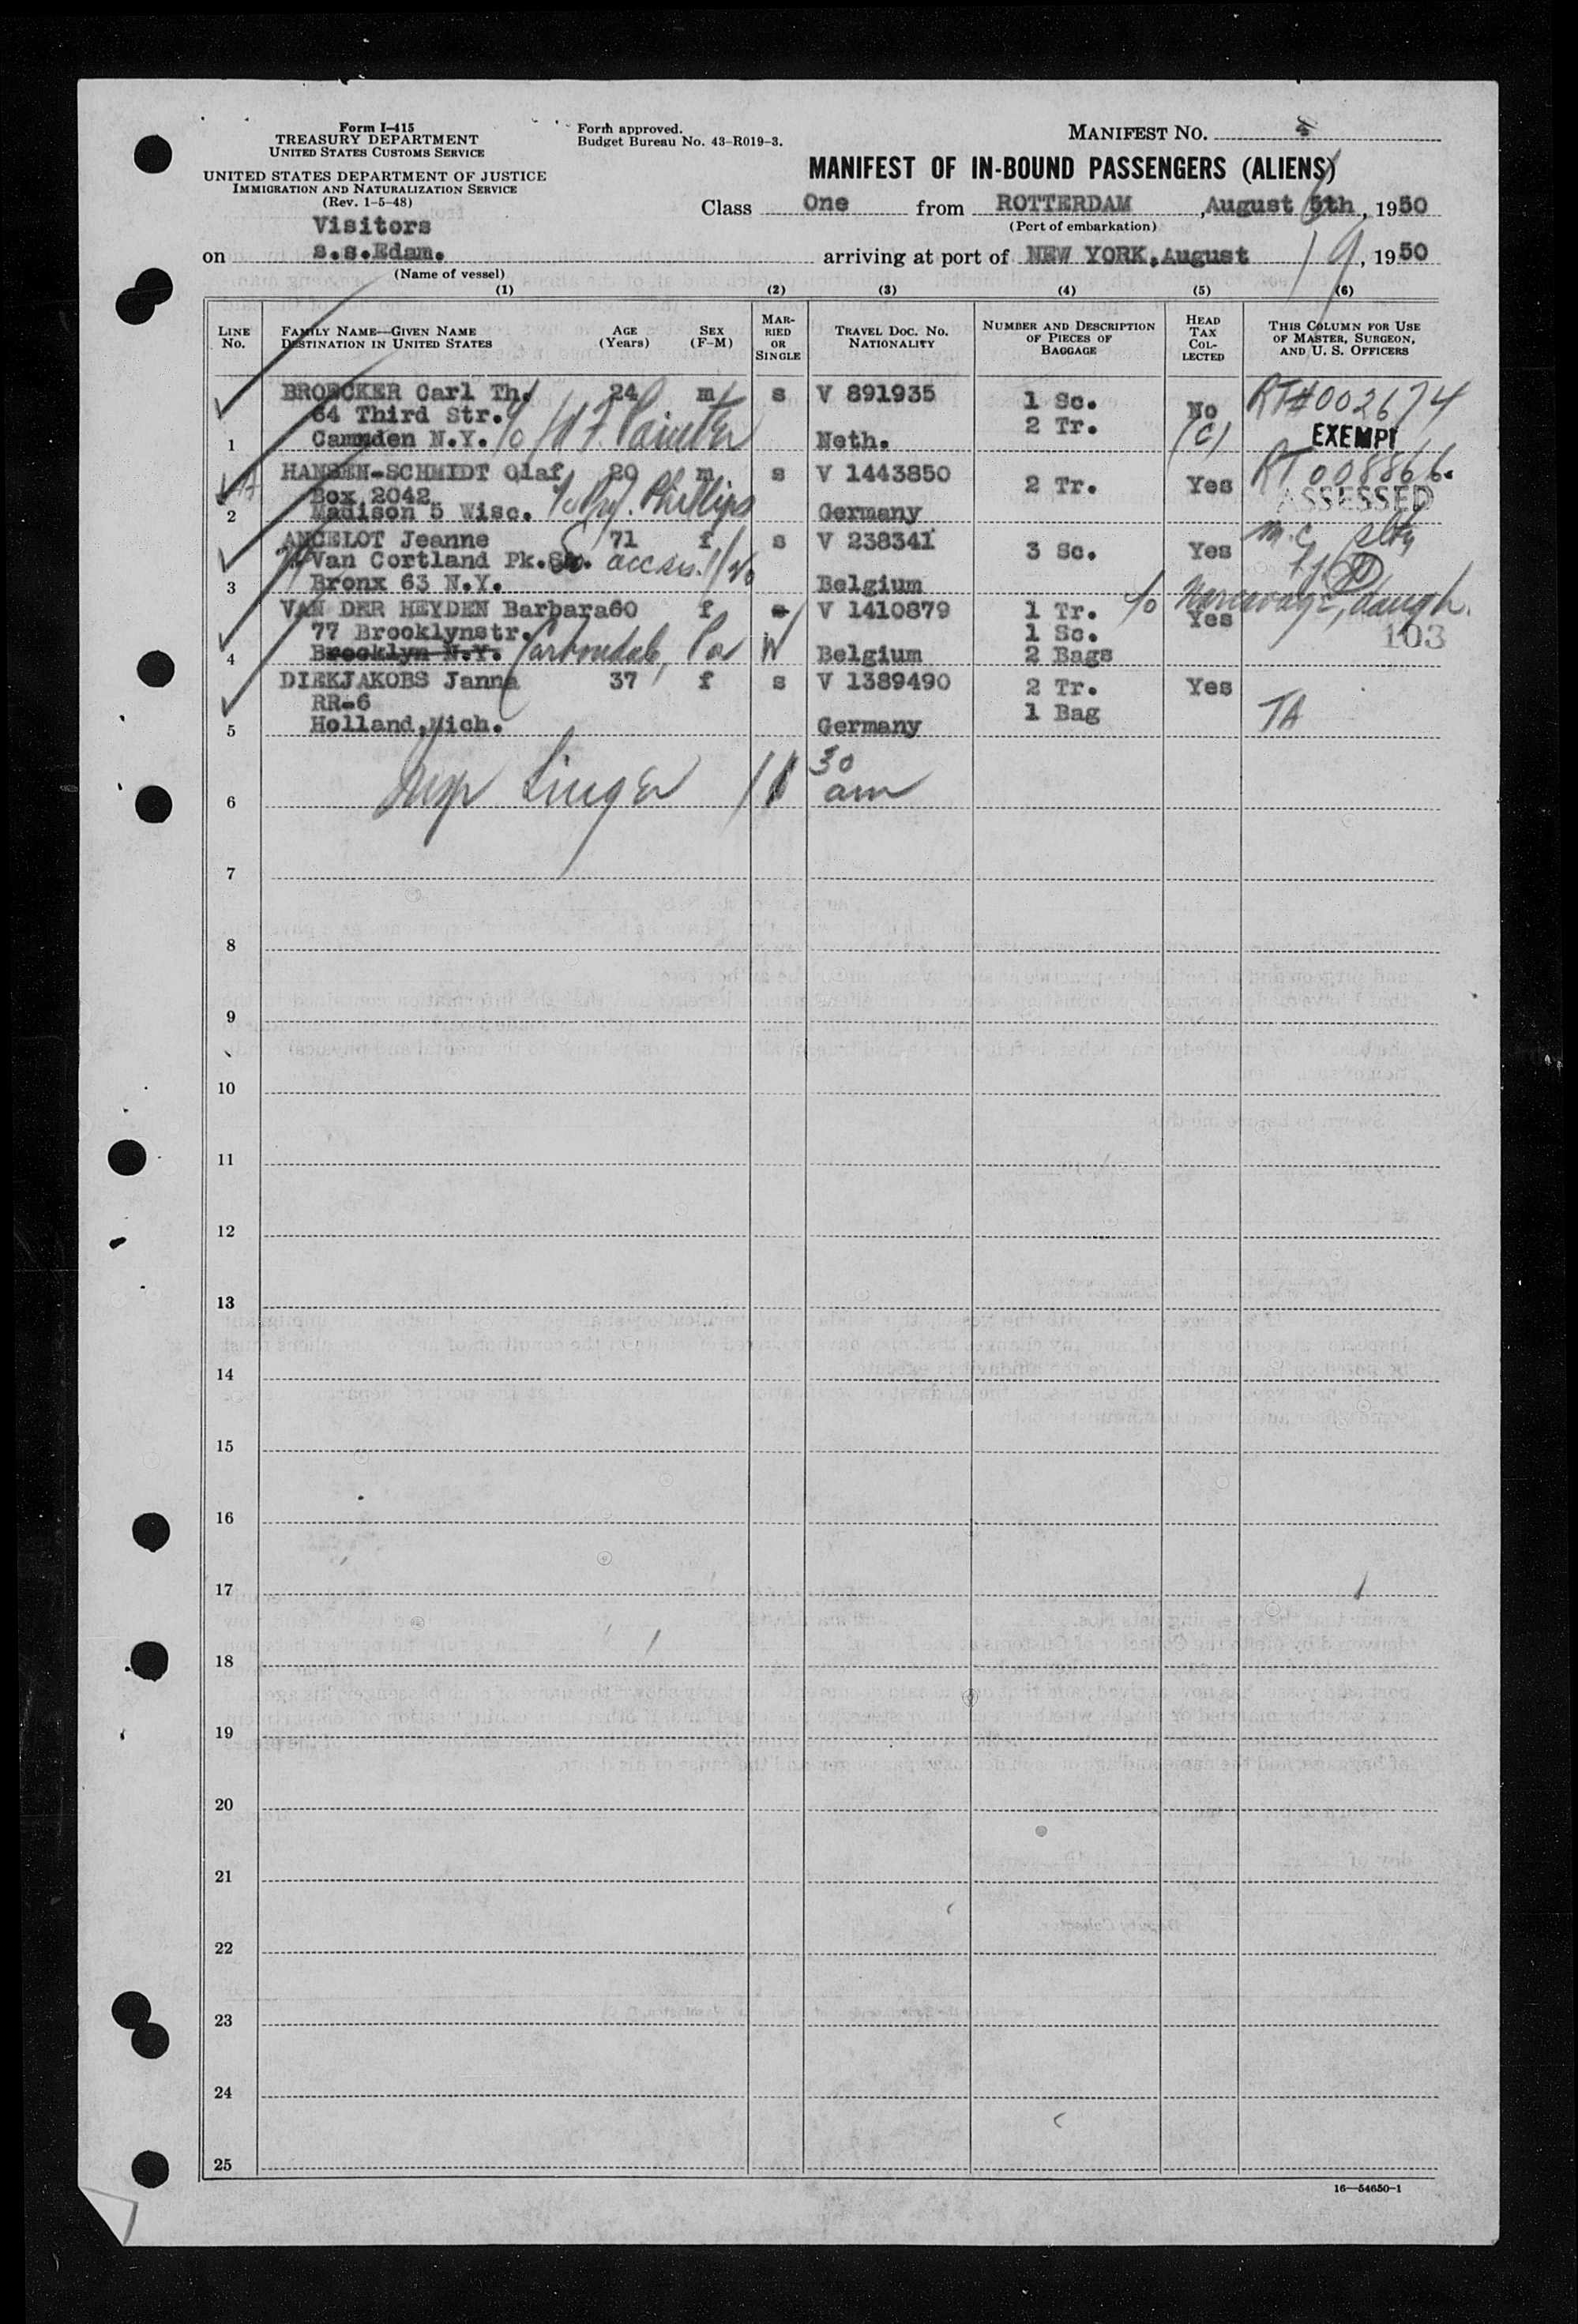 Form I-415
TREASURY DEPARTMENT
UNITED STATES CUSTOMS SERVICE
UNITED STATES DEPARTMENT OF JUSTICE
IMMIGRATION AND NATURALIZATION SERVICE
(Rev. 1-5-48)
Form approved.
Budget Bureau No. 43-R019-3.
MANIFEST NO.
MANIFEST OF IN-BOUND PASSENGERS (ALIENS)
Class One from ROTTERDAM, August 5th, 1950
(Port of embarkation)
Visitors
on s.s.Edam. arriving at port of NEW YORK, August 19, 1950
(Name of vessel)
(1) (2) (3) (4) (5) (6)
LINE No.
FAMILY NAME—GIVEN NAME
DESTINATION IN UNITED STATES
AGE (Years)
SEX (F-M)
MARRIED OR SINGLE
TRAVEL DOC. NO. NATIONALITY
NUMBER AND DESCRIPTION OF PIECES OF BAGGAGE
HEAD TAX COLLECTED
THIS COLUMN FOR USE OF MASTER, SURGEON, AND U. S. OFFICERS
BROECKER Carl Th. 24 m s V 891935 1 Sc. No RT#002674
64 Third Str. 2 Tr. (C)
1 Camnden N.Y. c/o W.F. Painter Neth. EXEMPT
HANSEN-SCHMIDT Olaf 20 m s V 1443850 2 Tr. Yes RT 008866
Box 2042 Phillips ASSESSED
2 Madison 5 Wisc. Germany
ANCELOT Jeanne 71 f s V 238341 3 Sc. Yes m.c.
Van Cortland Pk.
3 Bronx 63 N.Y. Belgium
VAN DER HEYDEN Barbara 60 f s V 1410879 1 Tr. Yes c/o daugh.
77 Brooklynstr. W 1 Sc. 103
4 Brooklyn N.Y. Carbondale, Pa Belgium 2 Bags
DIEKJAKOBS Janna 37 f s V 1389490 2 Tr. Yes
RR-6 1 Bag TA
5 Holland,Mich. Germany
6 Insp Singer 11 30 am
7
8
9
10
11
12
13
14
15
16
17
18
19
20
21
22
23
24
25
16—54650-1